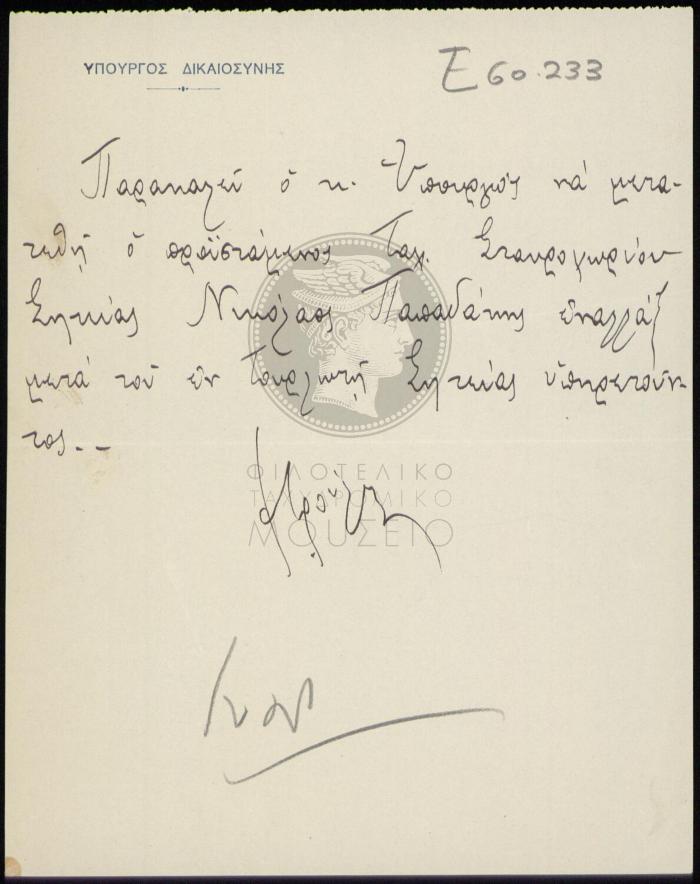 ΥΠΟΥΡΓΟΣ ΔΙΚΑΙΟΣΥΝΗΣ
Ε 60.233
Παρακαλεῖ ὁ κ. Ὑπουργὸς νά μετα-
τεθῇ ὁ προϊστάμενος Ταχ. Σταυροχωρίου
Σητείας Νικόλαος Παπαδάκης ἐναλλὰξ
μετά τοῦ ἐν Τουρλωτῇ Σητείας ὑπηρετοῦν-
τος.--
ΦΙΛΟΤΕΛΙΚΟ
ΤΑΧΥΔΡΟΜΙΚΟ
ΜΟΥΣΕΙΟ